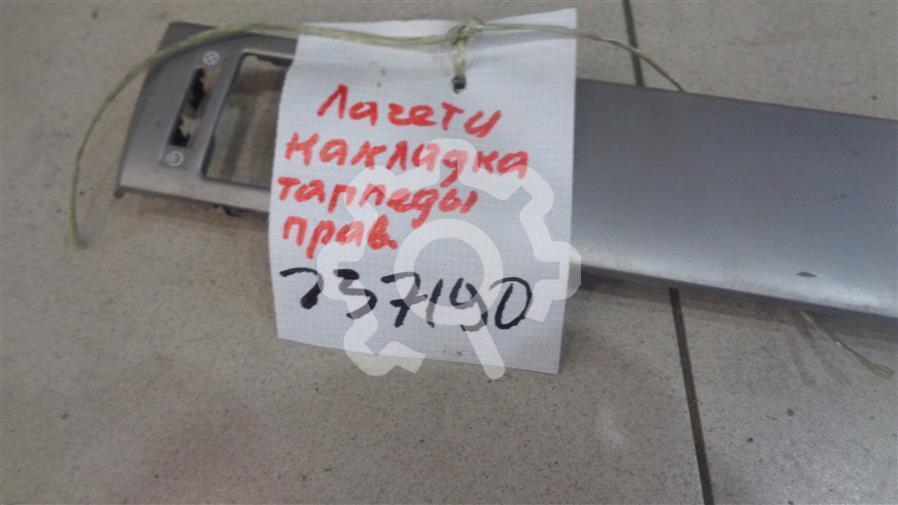 Лачети
накладка
тарпеды
прав.
237190